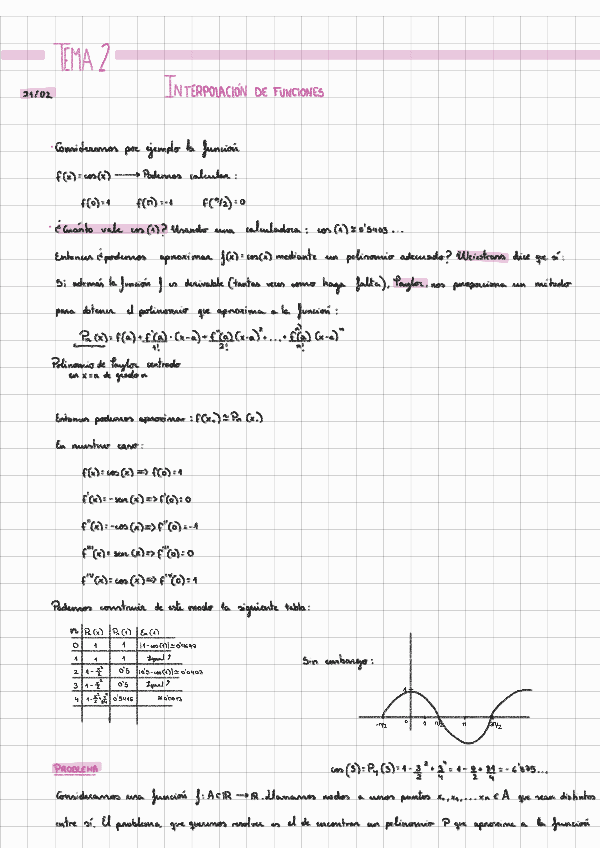 TEMA 2
21/02
INTERPOLACIÓN DE FUNCIONES
Consideramos por ejemplo la función
f(x)=cos(x) ⟶ Podemos calcular:
f(0)=1 f(π)=-1 f(π/2)=0
¿Cuánto vale cos(1)? Usando una calculadora: cos(1)≅0'5403...
Entonces ¿podemos aproximar f(x)=cos(x) mediante un polinomio adecuado? Weirstrass dice que sí:
Si además la función f es derivable (tantas veces como haga falta), Taylor nos proporciona un método
para obtener el polinomio que aproxima a la función:
Pn(x)=f(a)+f'(a)/1!·(x-a)+f''(a)/2!(x-a)²+...+fⁿ(a)/n!(x-a)ⁿ
Polinomio de Taylor centrado
en x=a de grado n
Entonces podemos aproximar: f(x₀)≅Pn(x₀)
En nuestro caso:
f(x)=cos(x)⇒f(0)=1
f'(x)=-sen(x)⇒f'(0)=0
f''(x)=-cos(x)⇒f''(0)=-1
f'''(x)=sen(x)⇒f'''(0)=0
f'ⱽ(x)=cos(x)⇒f'ⱽ(0)=1
Podemos construir de este modo la siguiente tabla:
n Pn(x) Pn(1) En(1)
0 1 1 |1-cos(1)|≅0'4597
1 1 1 Igual ↑
2 1-x²/2 0'5 |0'5-cos(1)|≅0'0403
3 1-x²/2 0'5 Igual ↑
4 1-x²/2+x⁴/24 0'5416
Sin embargo:
1
-π/2 0 1 π/2 π 3π/2
PROBLEMA
Consideramos una función f: A⊂ℝ ⟶ ℝ. Llamamos nodos a unos puntos x₀,x₁,...xn ∈ A que sean distintos
entre sí. El problema que queremos resolver es el de encontrar un polinomio P que aproxime a la función